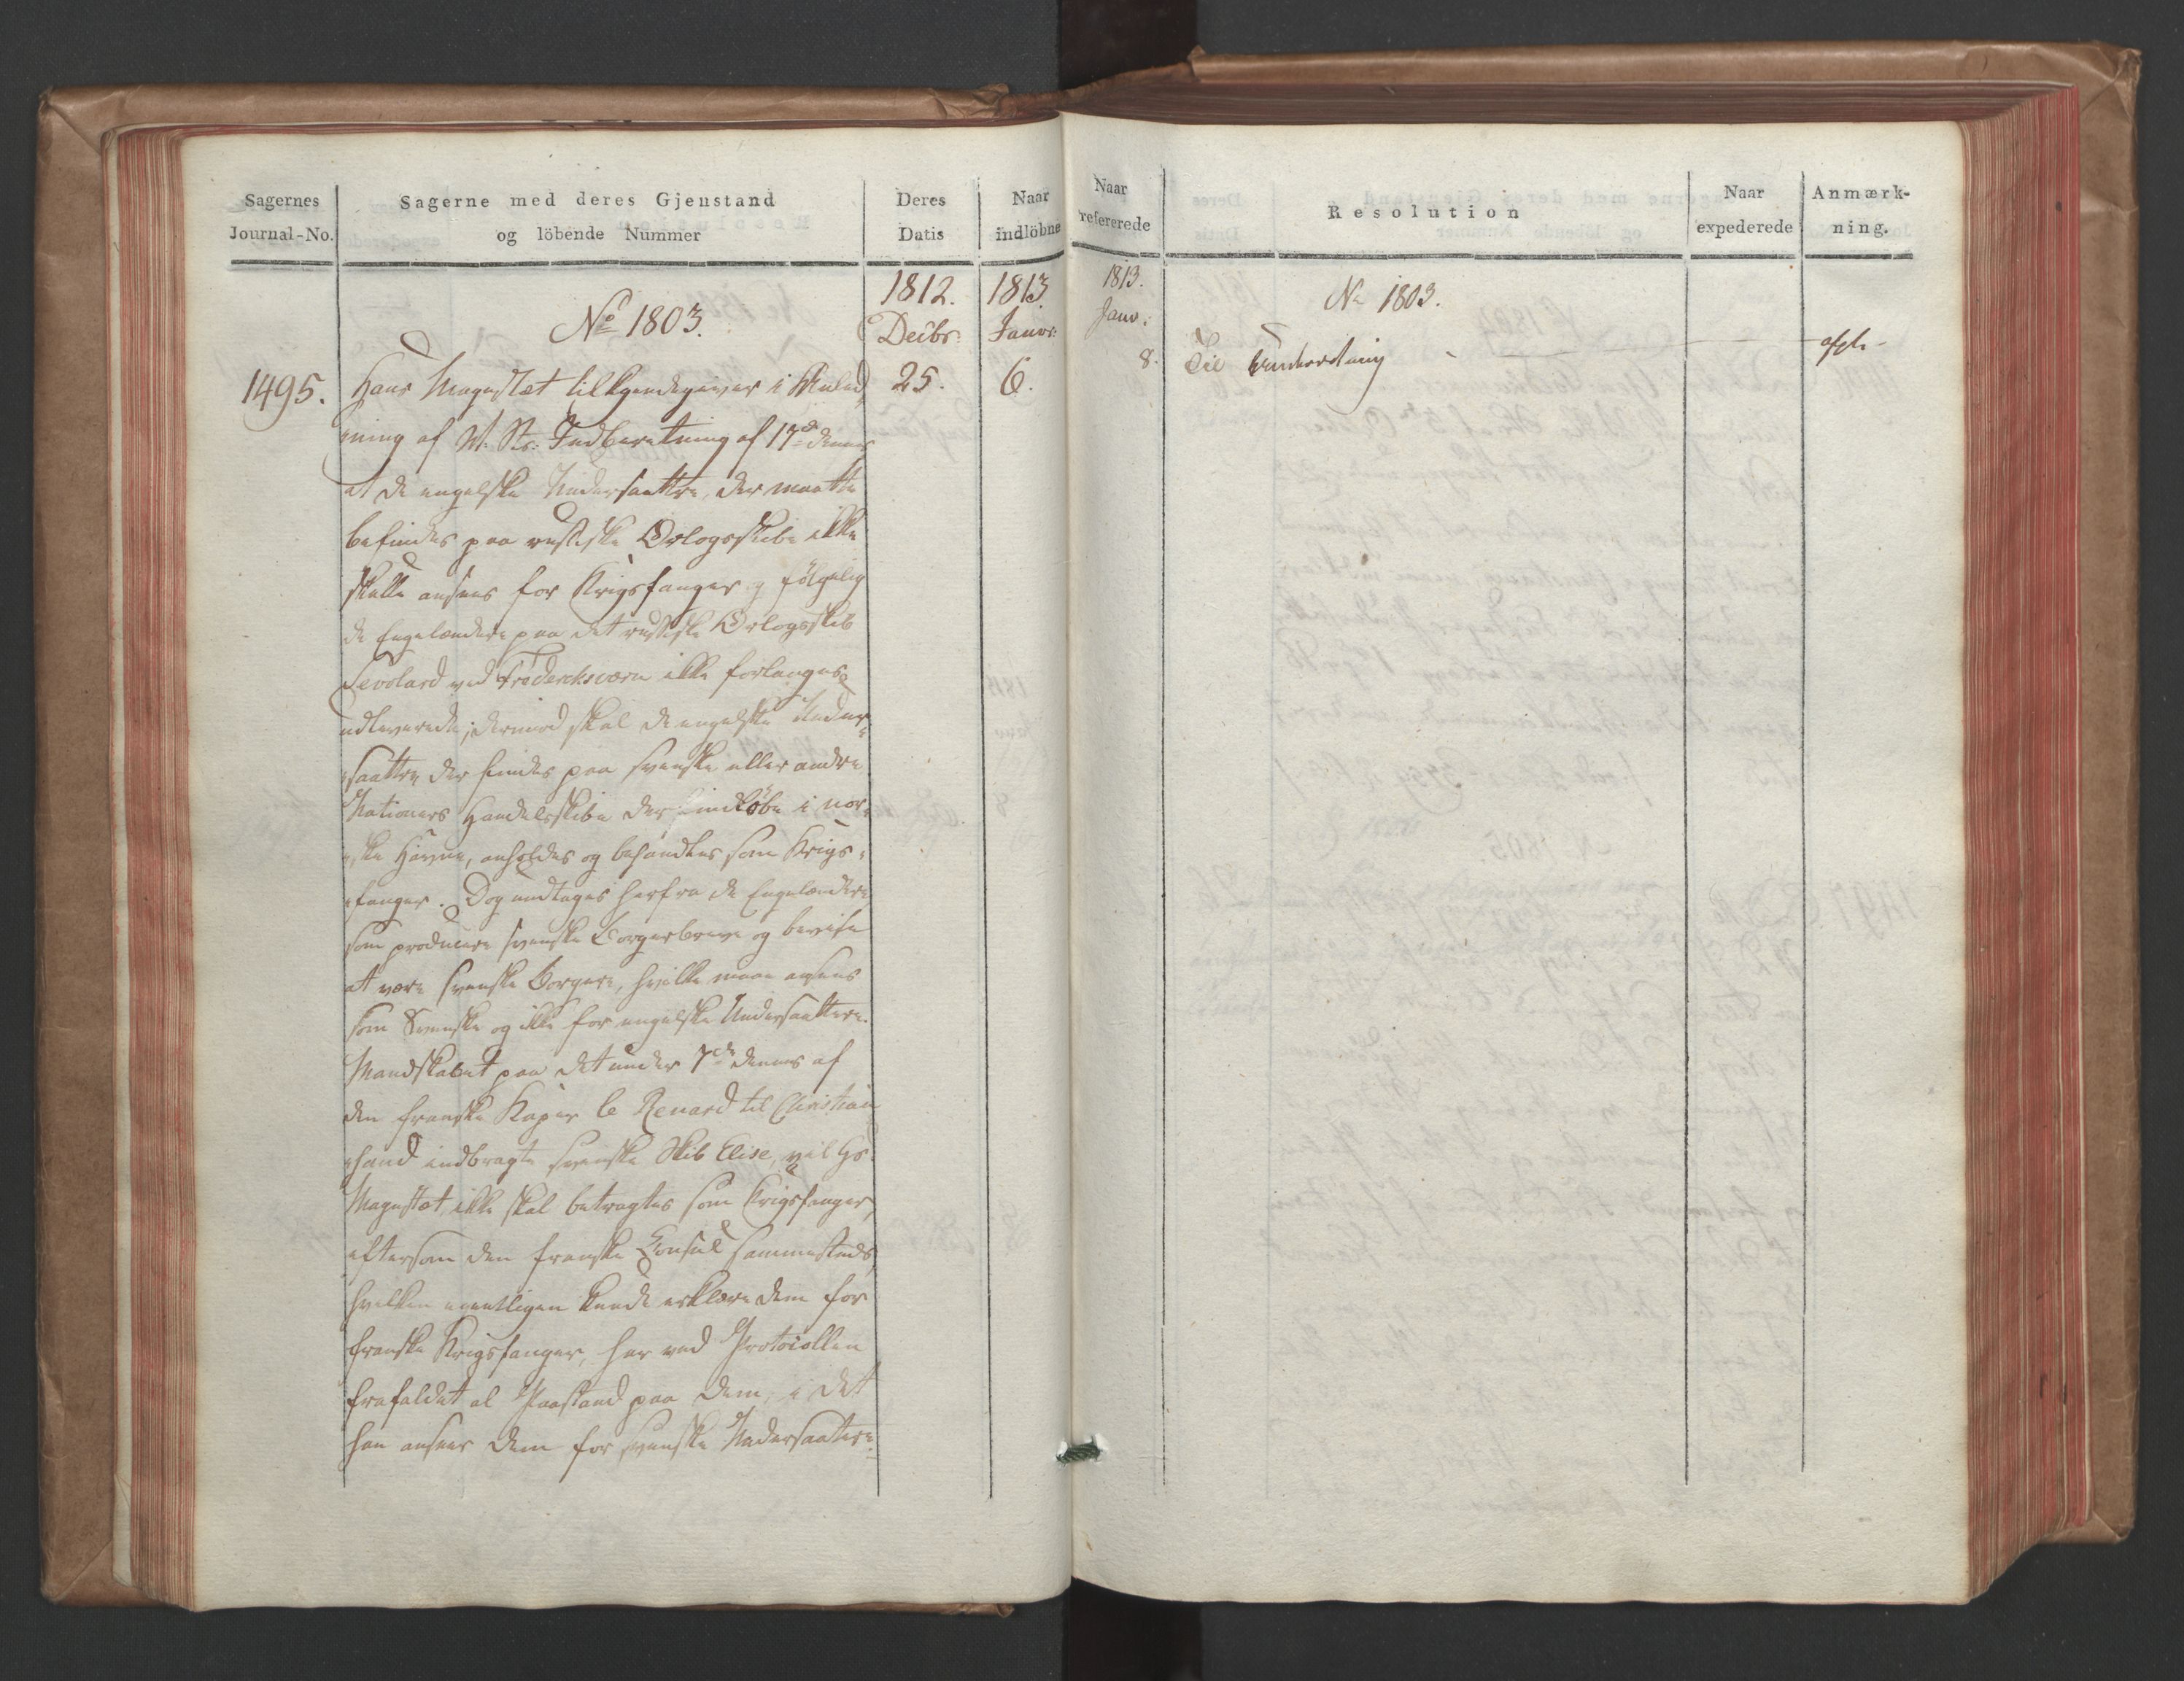 Sagernes
Journal-No.
Sagerne med deres Gjenstand
og löbende Nummer
Deres
Datis
Naar
indlöbne
1812.
Decbr:
1813.
Januar:
No 1803.
1495.
25.
6.
Hans Magestæt tilkjendegiver i Anled¬
ning af N. Rs: Indberetning af 17de dennes
at de engelske Undersaattere, der maatte
befindes paa russiske Orlogsskibe ikke
skulle ansees for Krigsfanger og følgelig
de Engelændere paa det russiske Orlogsskib
Sevolard ved Frederiksværn ikke forlanges
udleverede; derimod skal de engelske Under¬
saattere der findes paa svenske eller andre
Nationers Handelsskibe der indløbe i nor¬
ske Havne, anholdes og behandles som Krigs¬
fanger. Dog undtages herfra de Engelændere
som producere svenske Borgerbreve og bevise
at være svenske Borgere, hvilke maae ansees
som Svenske og ikke for engelske Undersaattere.
Mandskabet paa det under 7de dennes af
den franske Kaper le Renard til Christian
sand indbragte svenske Skib Elise, vil Hs.
Magestæt ikke skal betragtes som Krigsfanger,
eftersom den franske Consul sammesteds,
hvilken egentligen kunde erklære dem for
franske Krigsfanger, har ved Protocollen
frafaldet al Paastand paa dem, i det
han anseer dem for svenske Undersaattere.
Naar
refererede
Resolution
Naar
expederede
Anmærk-
ning.
1813.
Janv:
8.
No 1803.
Til
afgl.